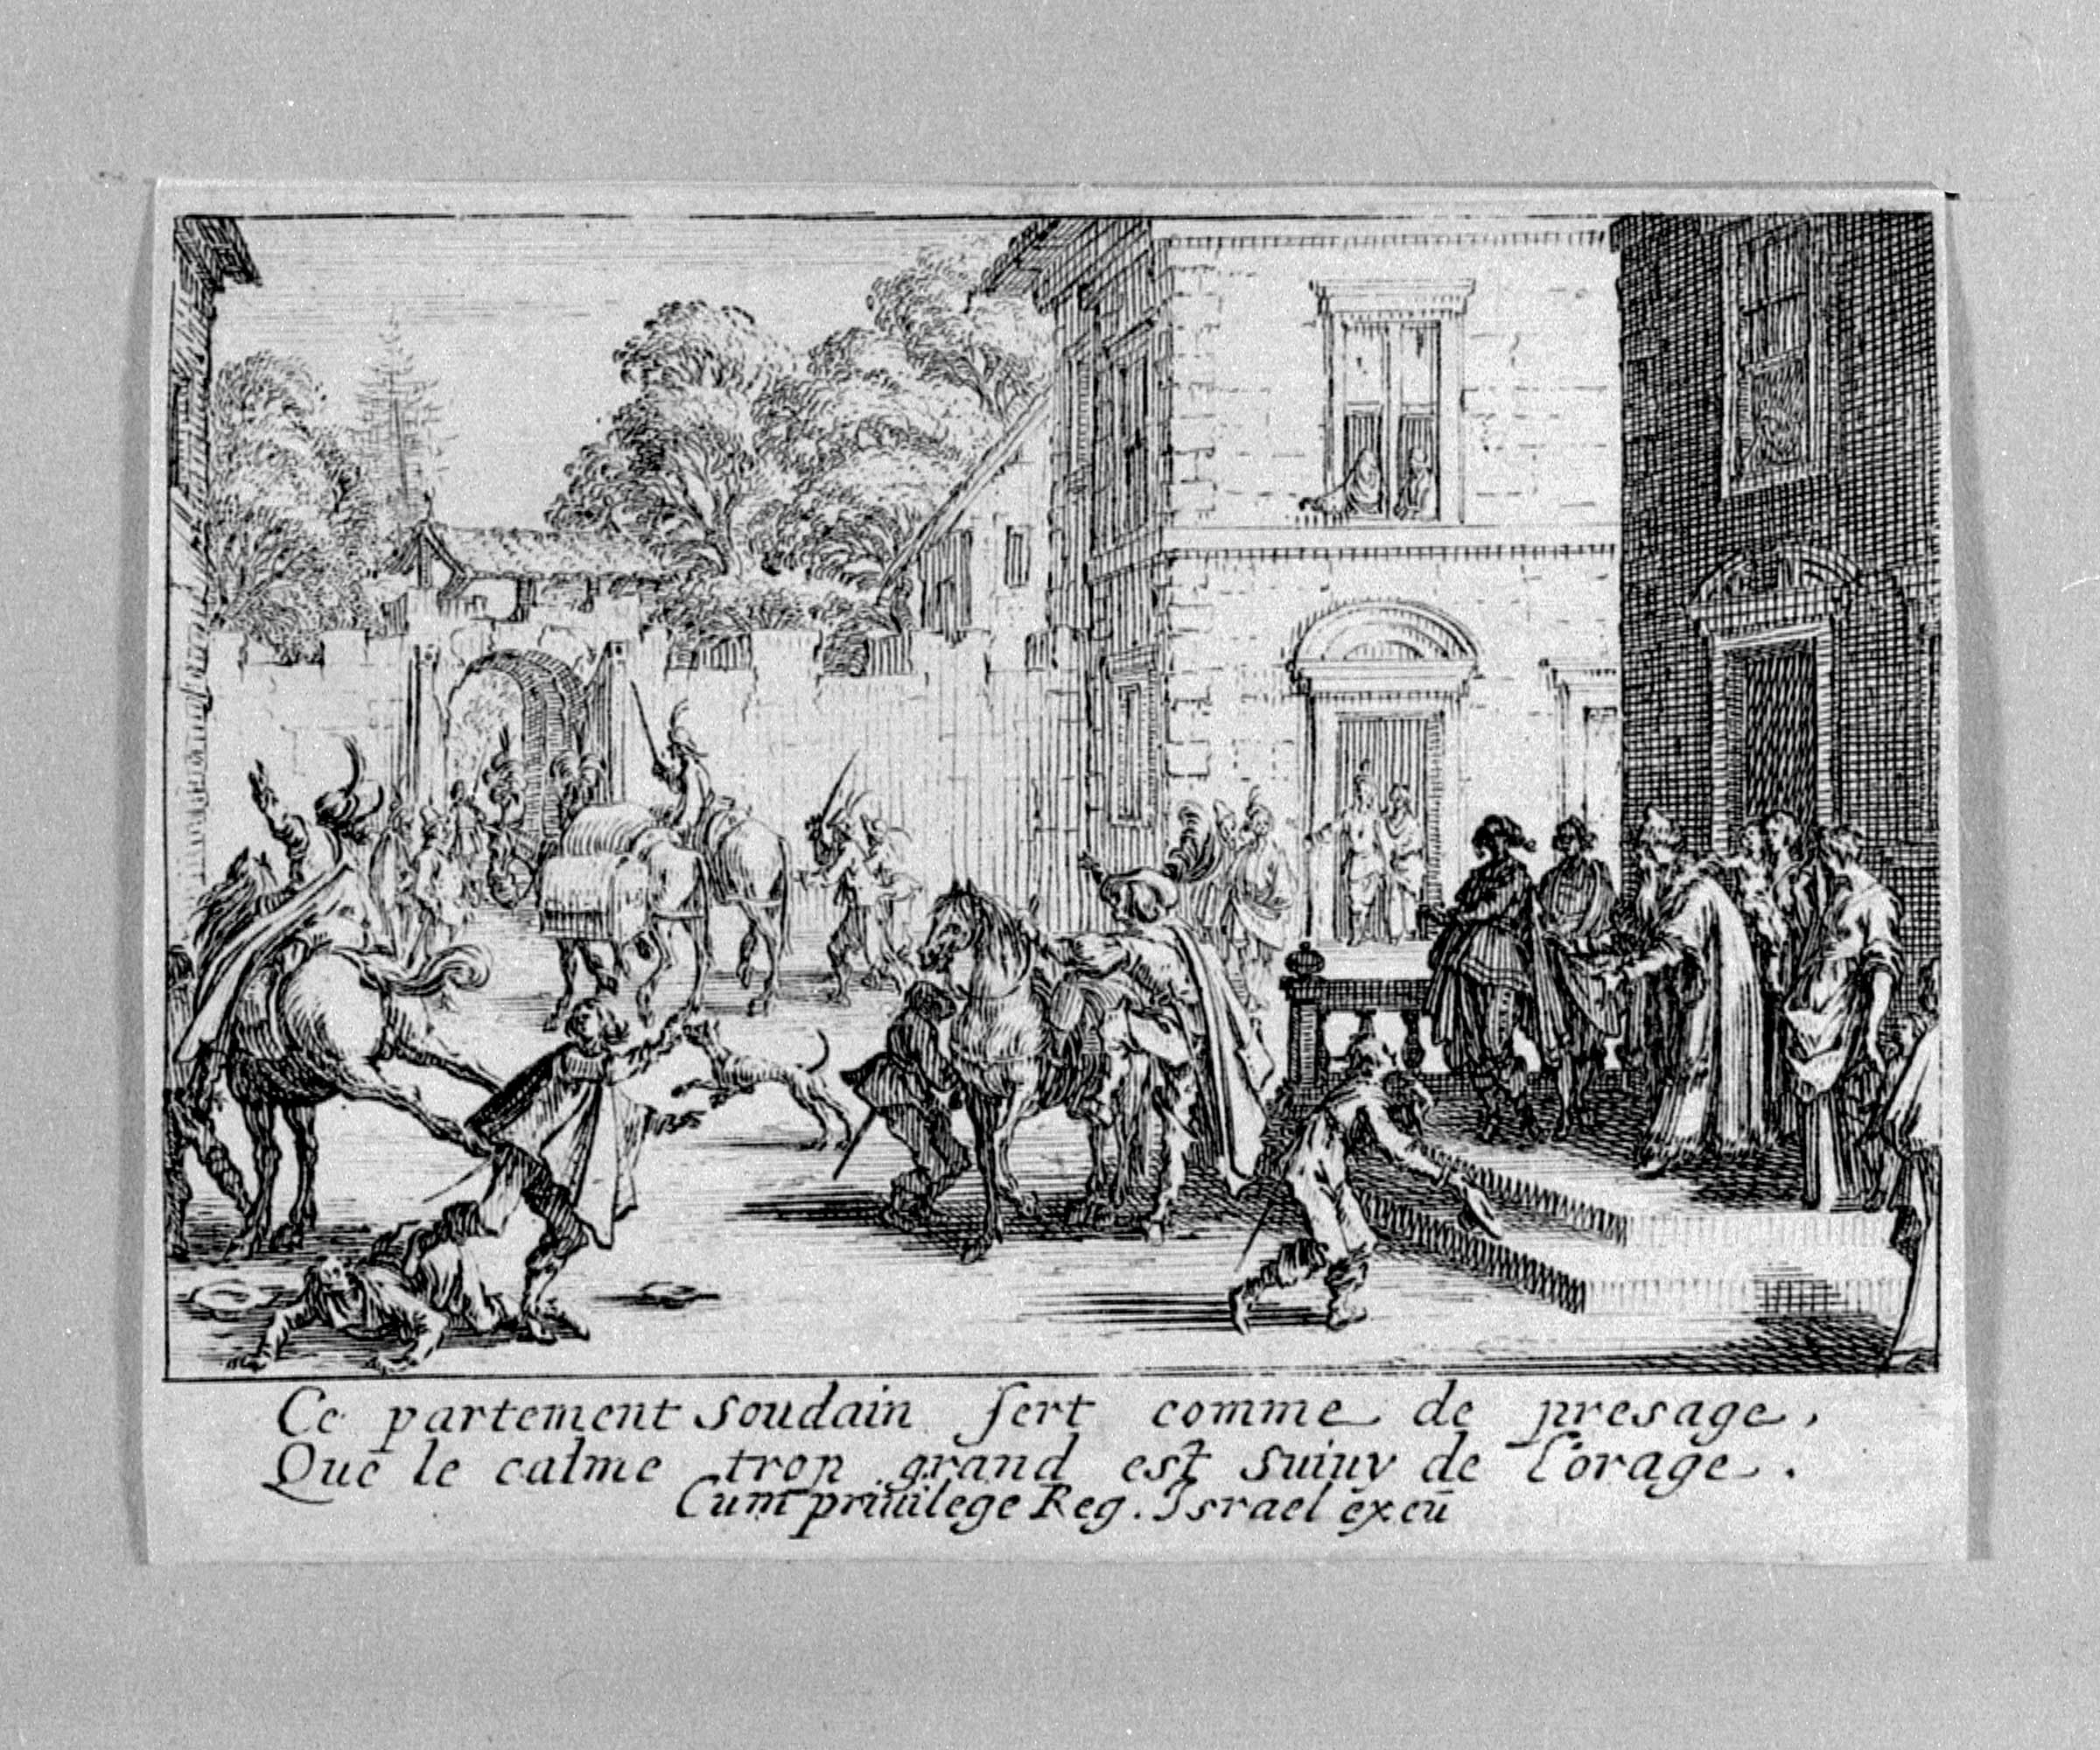 Ce partement soudain sert comme de presage,
Que le calme trop grand est suiuy de l'orage.
Cum priuilege Reg. Israel excū